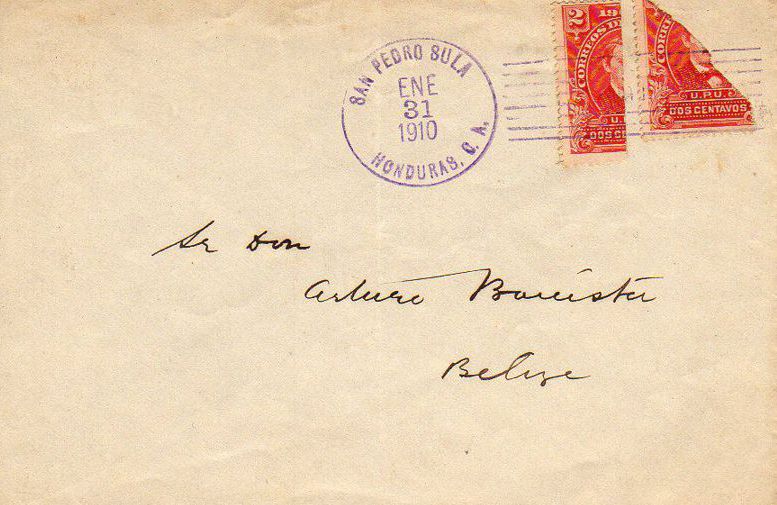 SAN PEDRO SULA
ENE
31
1910
HONDURAS, C. A.
2 19
CORREOS DE
U.
DOS C
CORRE
U.P.U.
DOS CENTAVOS
Sr Don
Arturo
Belize